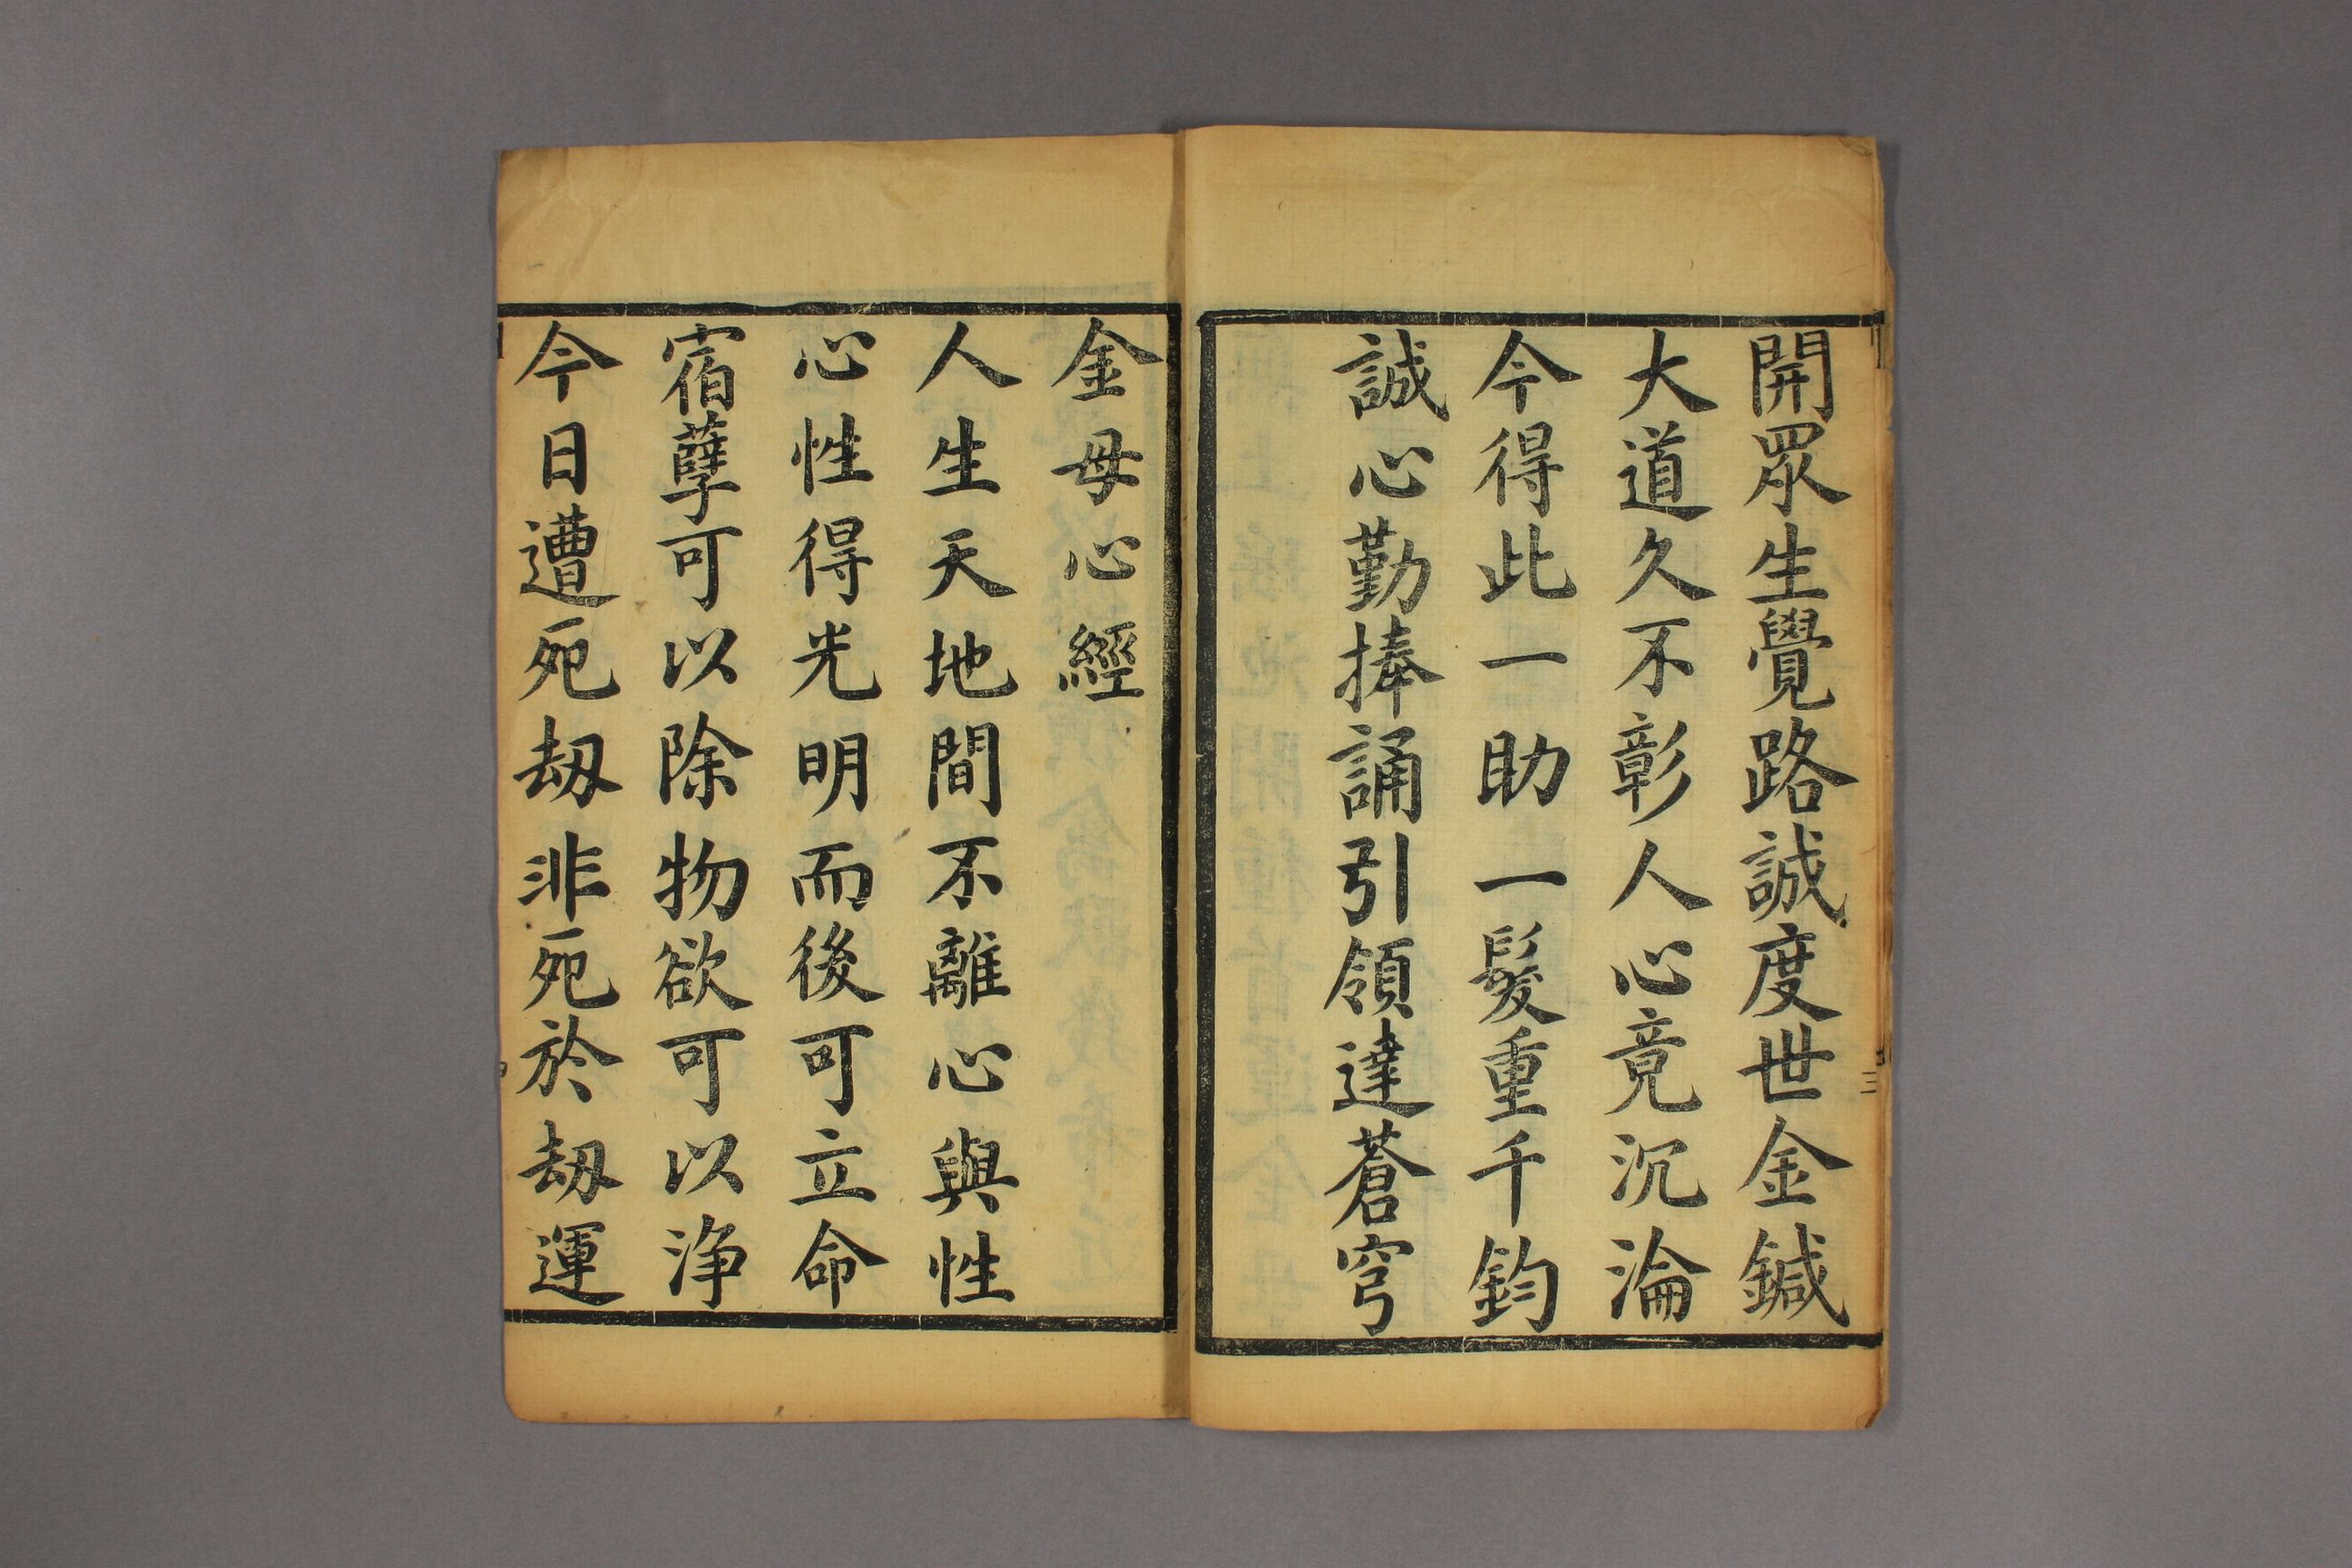 開眾生覺路誠度世金鍼
大道久不彰人心竟沉淪
今得此一助一髮重千鈞
誠心勤捧誦引領達蒼穹
三
金母心經
人生天地間不離心與性
心性得光明而後可立命
宿孽可以除物欲可以淨
今日遭死劫非死於劫運